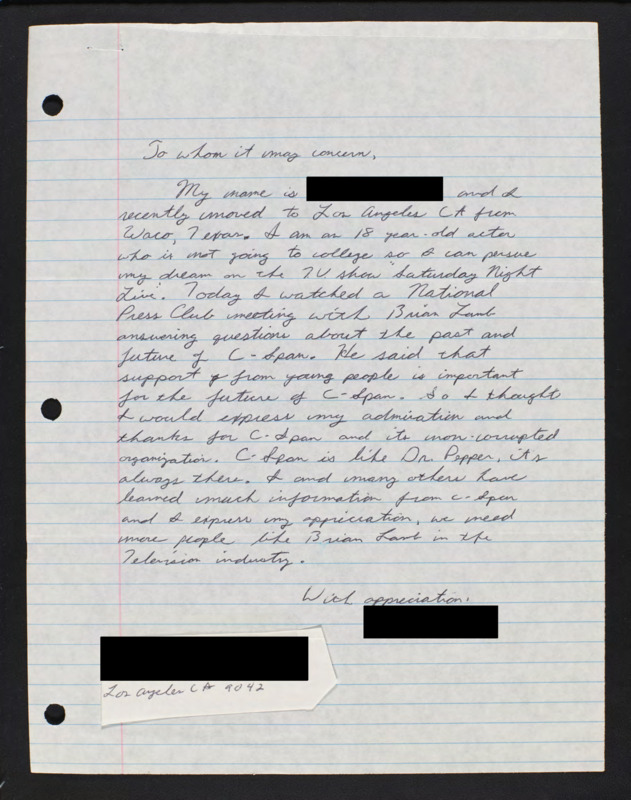 To whom it may concern,
My name is and I
recently moved to Los Angeles CA from
Waco, Texas. I am an 18 year-old actor
who is not going to college so I can persue
my dream on the TV show Saturday Night
Live. Today I watched a National
Press Club meeting with Brian Lamb
answering questions about the past and
future of C-Span. He said that
support from young people is important
for the future of C-Span. So I thought
I would express my admiration and
thanks for C-Span and its non-corrupted
organization. C-Span is like Dr. Pepper, it's
always there. I and many others have
learned much information from C-Span
and I express my appriciation, we need
more people like Brian Lamb in the
Television industry.
With appreciation,
Los Angeles CA 9042